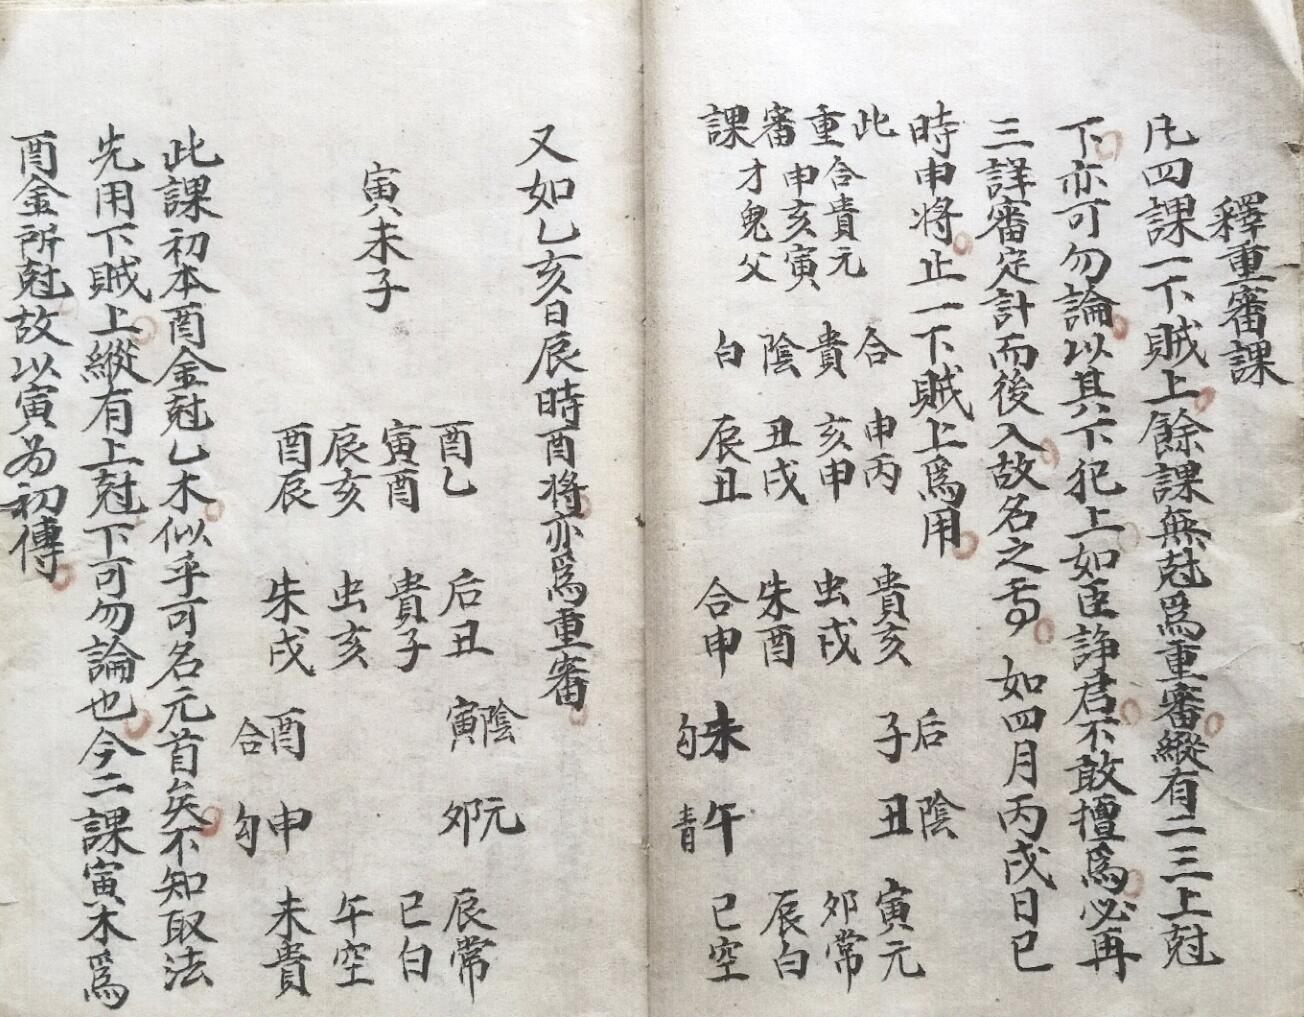 釋重審課
凡四課一下賊上餘課無尅爲重審縱有二三上尅
下亦可勿論以其下犯上如臣諍君不敢擅爲必再
三詳審定計而後入故名之焉 如四月丙戌日巳
時申将止一下賊上爲用
此重審課
合貴元
申亥寅
才鬼父
合 貴 陰 白
申丙 亥申 丑戌 辰丑
貴亥 虫戌 朱酉 合申
后子 未勾
陰丑 午青
寅元 夘常 辰白 巳空
又如乙亥日辰時酉将亦爲重審
寅未子
酉乙 寅酉 辰亥 酉辰
后丑 貴子 虫亥 朱戌
陰寅 酉合
元夘 申勾
辰常 巳白 午空 未貴
此課初本酉金尅乙木似乎可名元首矣不知取法
先用下賊上縱有上尅下可勿論也今二課寅木爲
酉金所尅故以寅为初傳